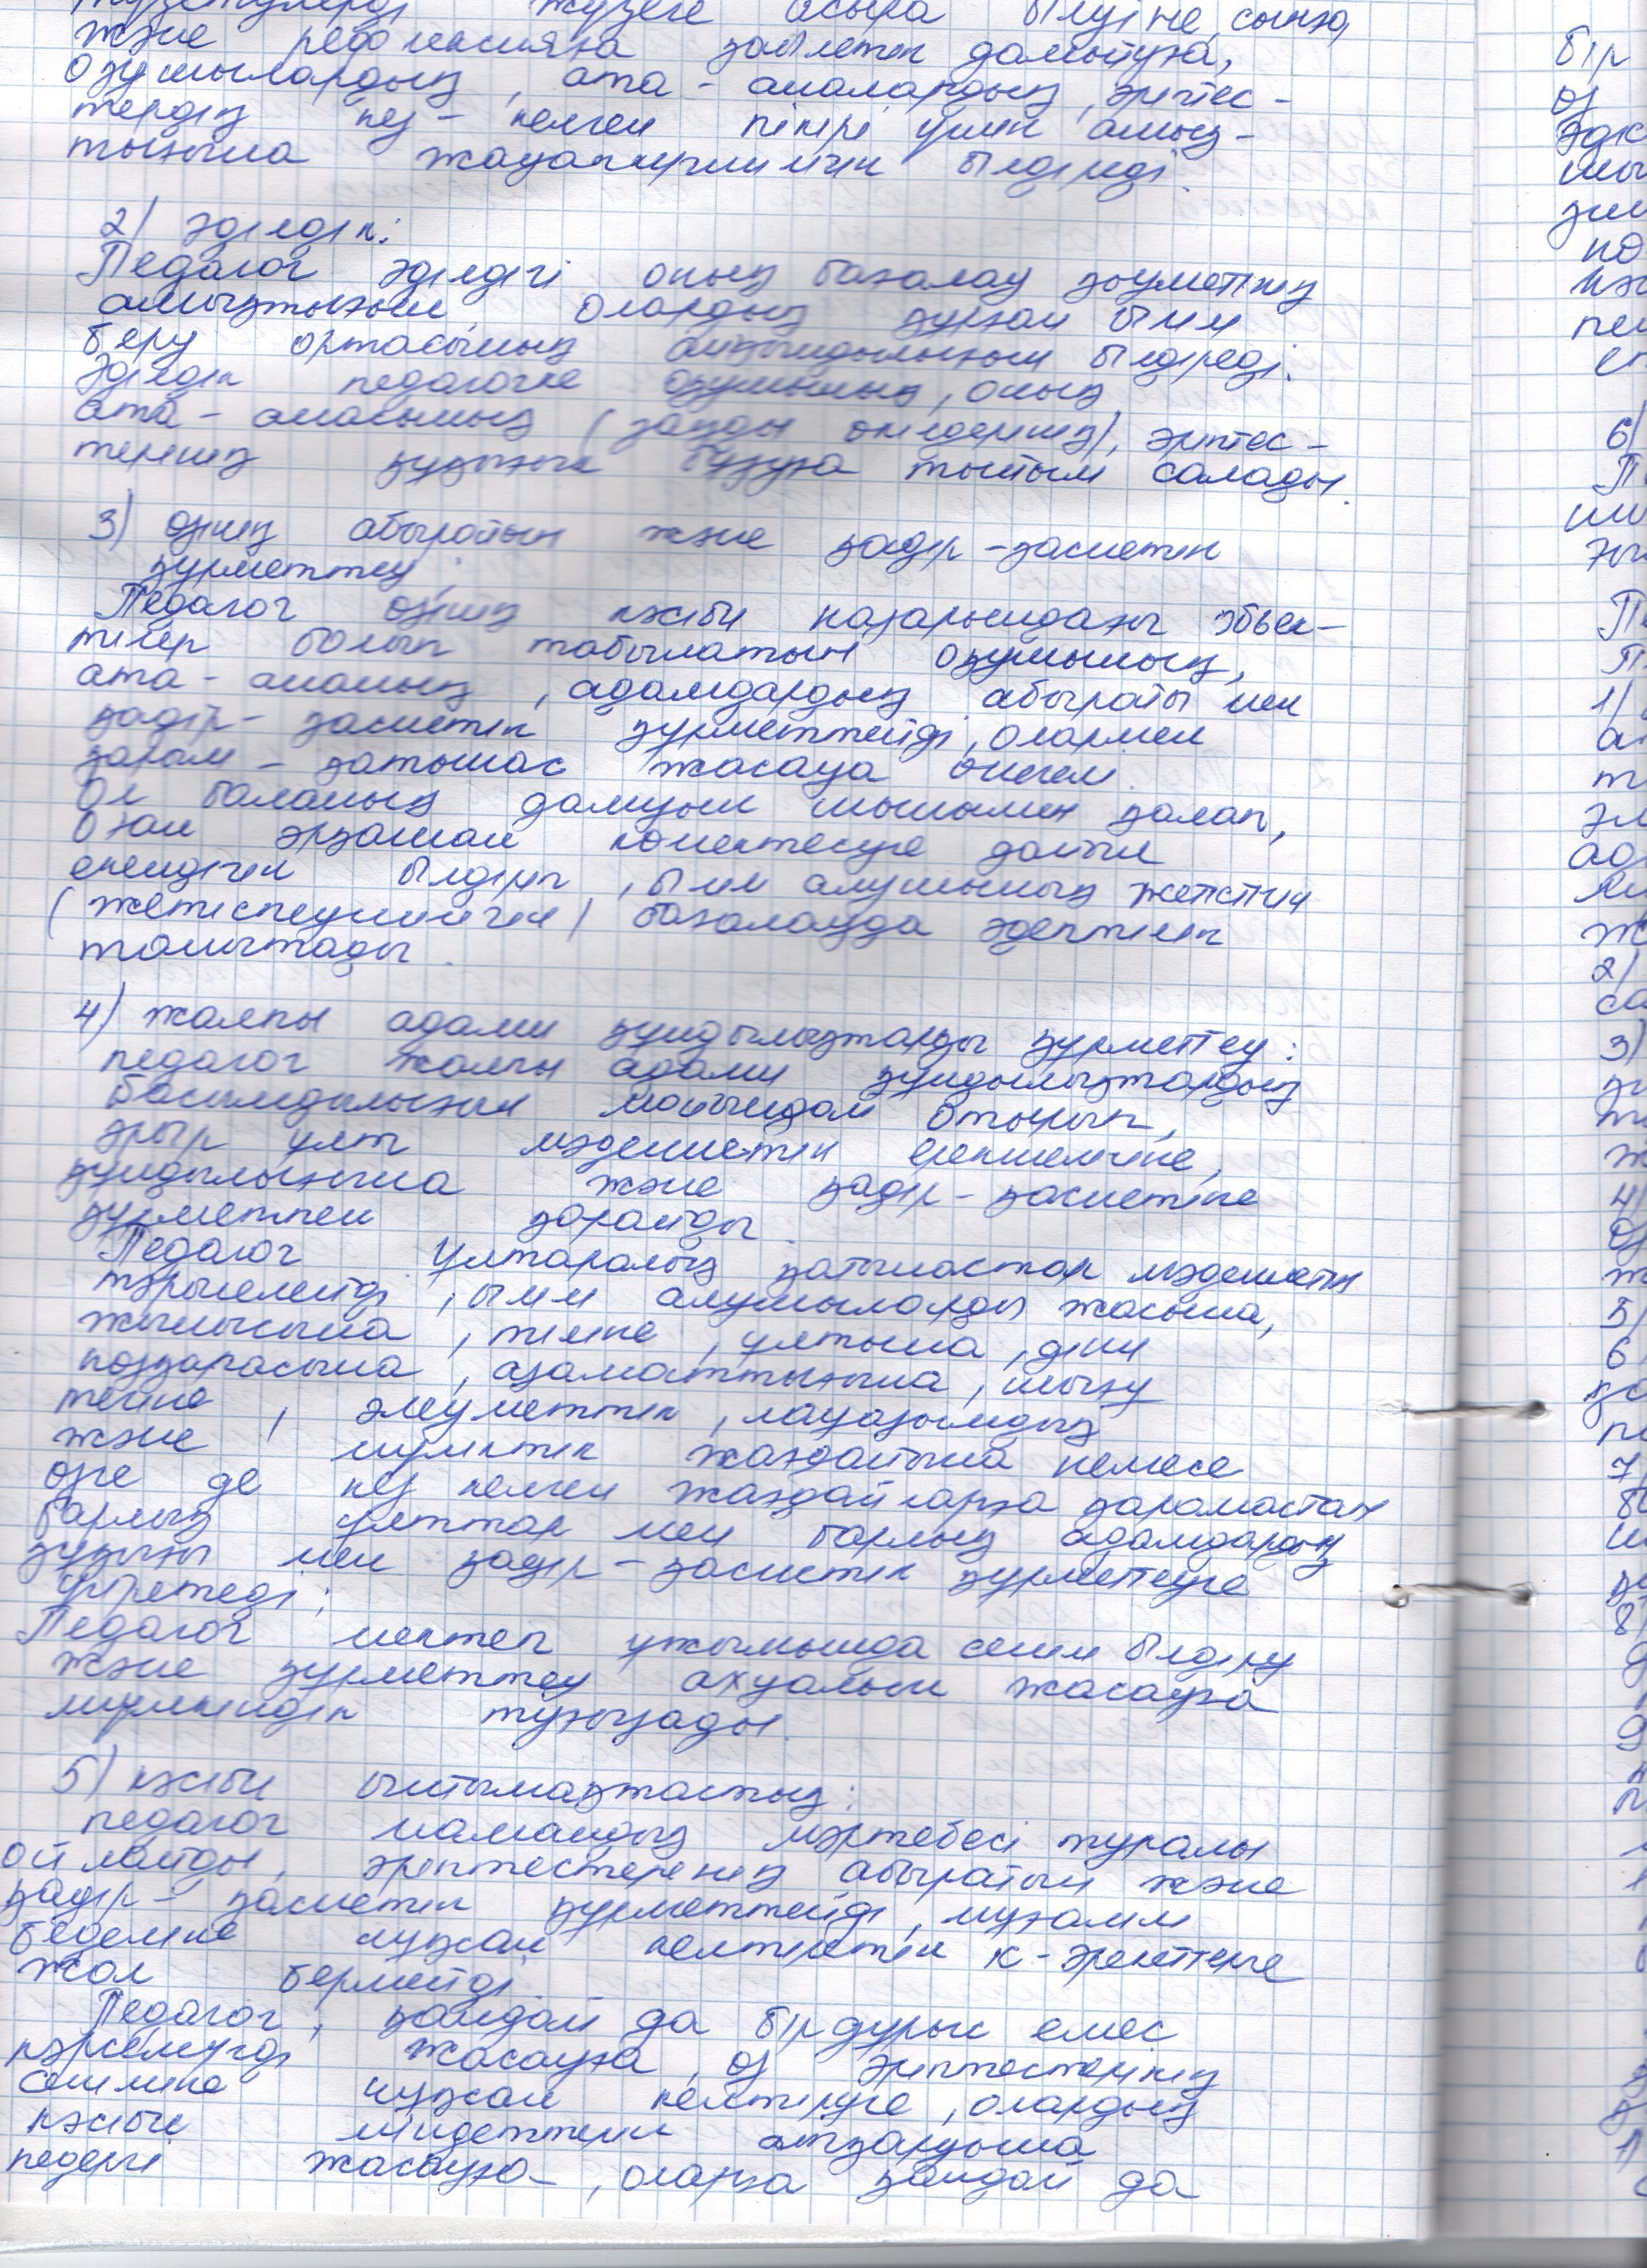 түзетулерді жүзеге асыра білуіне, сынға,
және рефлексияға қабілетін дамытуға,
оқушылардың, ата-аналардың, әріптес-
тердің кез-келген пікірі үшін ашық-
тығына жауапкершілігін білдіреді.
2) әділдік:
Педагог әділдігі оның бағалау қызметінің
ашықтығын, олардың құрған білім
беру ортасының айқындылығын білдіреді.
Әділдік педагогке оқушының, оның
ата-анасының (заңды өкілдерінің), әріптес-
терінің құқығын бұзуға тыйым салады.
3) өзінің абыройын және қадір-қасиетін
құрметтеу:
Педагог өзінің кәсіби назарындағы объек-
тілер болып табылатын оқушының,
ата-ананың, адамдардың абыройы мен
қадір-қасиетін құрметтейді, олармен
қарым-қатынас жасауға өнегелі.
Ол баланың дамуын шынымен қалап,
оған әрқашан көмектесуге дайын
екендігін білдіріп, білім алушының жетістігін
(жетіспеушілігін) бағалауда әдептілік
танытады.
4) жалпы адами құндылықтарды құрметтеу:
педагог жалпы адами құндылықтардың
басымдылығын мойындай отырып,
әрбір ұлт мәдениетін ерекшелігіне,
құндылығына және қадір-қасиетіне
құрметпен қарайды.
Педагог ұлтаралық қатынастар мәдениетін
тәрбиелейді, білім алушыларды жасына,
жынысына, тіліне, ұлтына, діни
көзқарасына, азаматтығына, шығу
тегіне, әлеуметтік, лауазымдық
және мүліктік жағдайына немесе
өзге де кез келген жағдайларға қарамастан
барлық ұлттар мен барлық адамдардың
құқығы мен қадір-қасиетін құрметтеуге
үйретеді;
Педагог мектеп ұжымында сенім білдіру
және құрметтеу ахуалын жасауға
мүмкіндік туғызады.
5) кәсіби ынтымақтастық:
педагог мамандық мәртебесі туралы
ойлайды, әріптестеренің абыройын және
қадір-қасиетін құрметтейді, мұғалім
беделіне нұқсан келтіретін іс-әрекеттерге
жол бермейді.
Педагог, қандай да бір дұрыс емес
нәрселерді жасауға, өз әріптестерінің
сеніміне нұқсан келтіруге, олардың
кәсіби міндеттерін атқаруына
кедергі жасауға, оларға қандай да